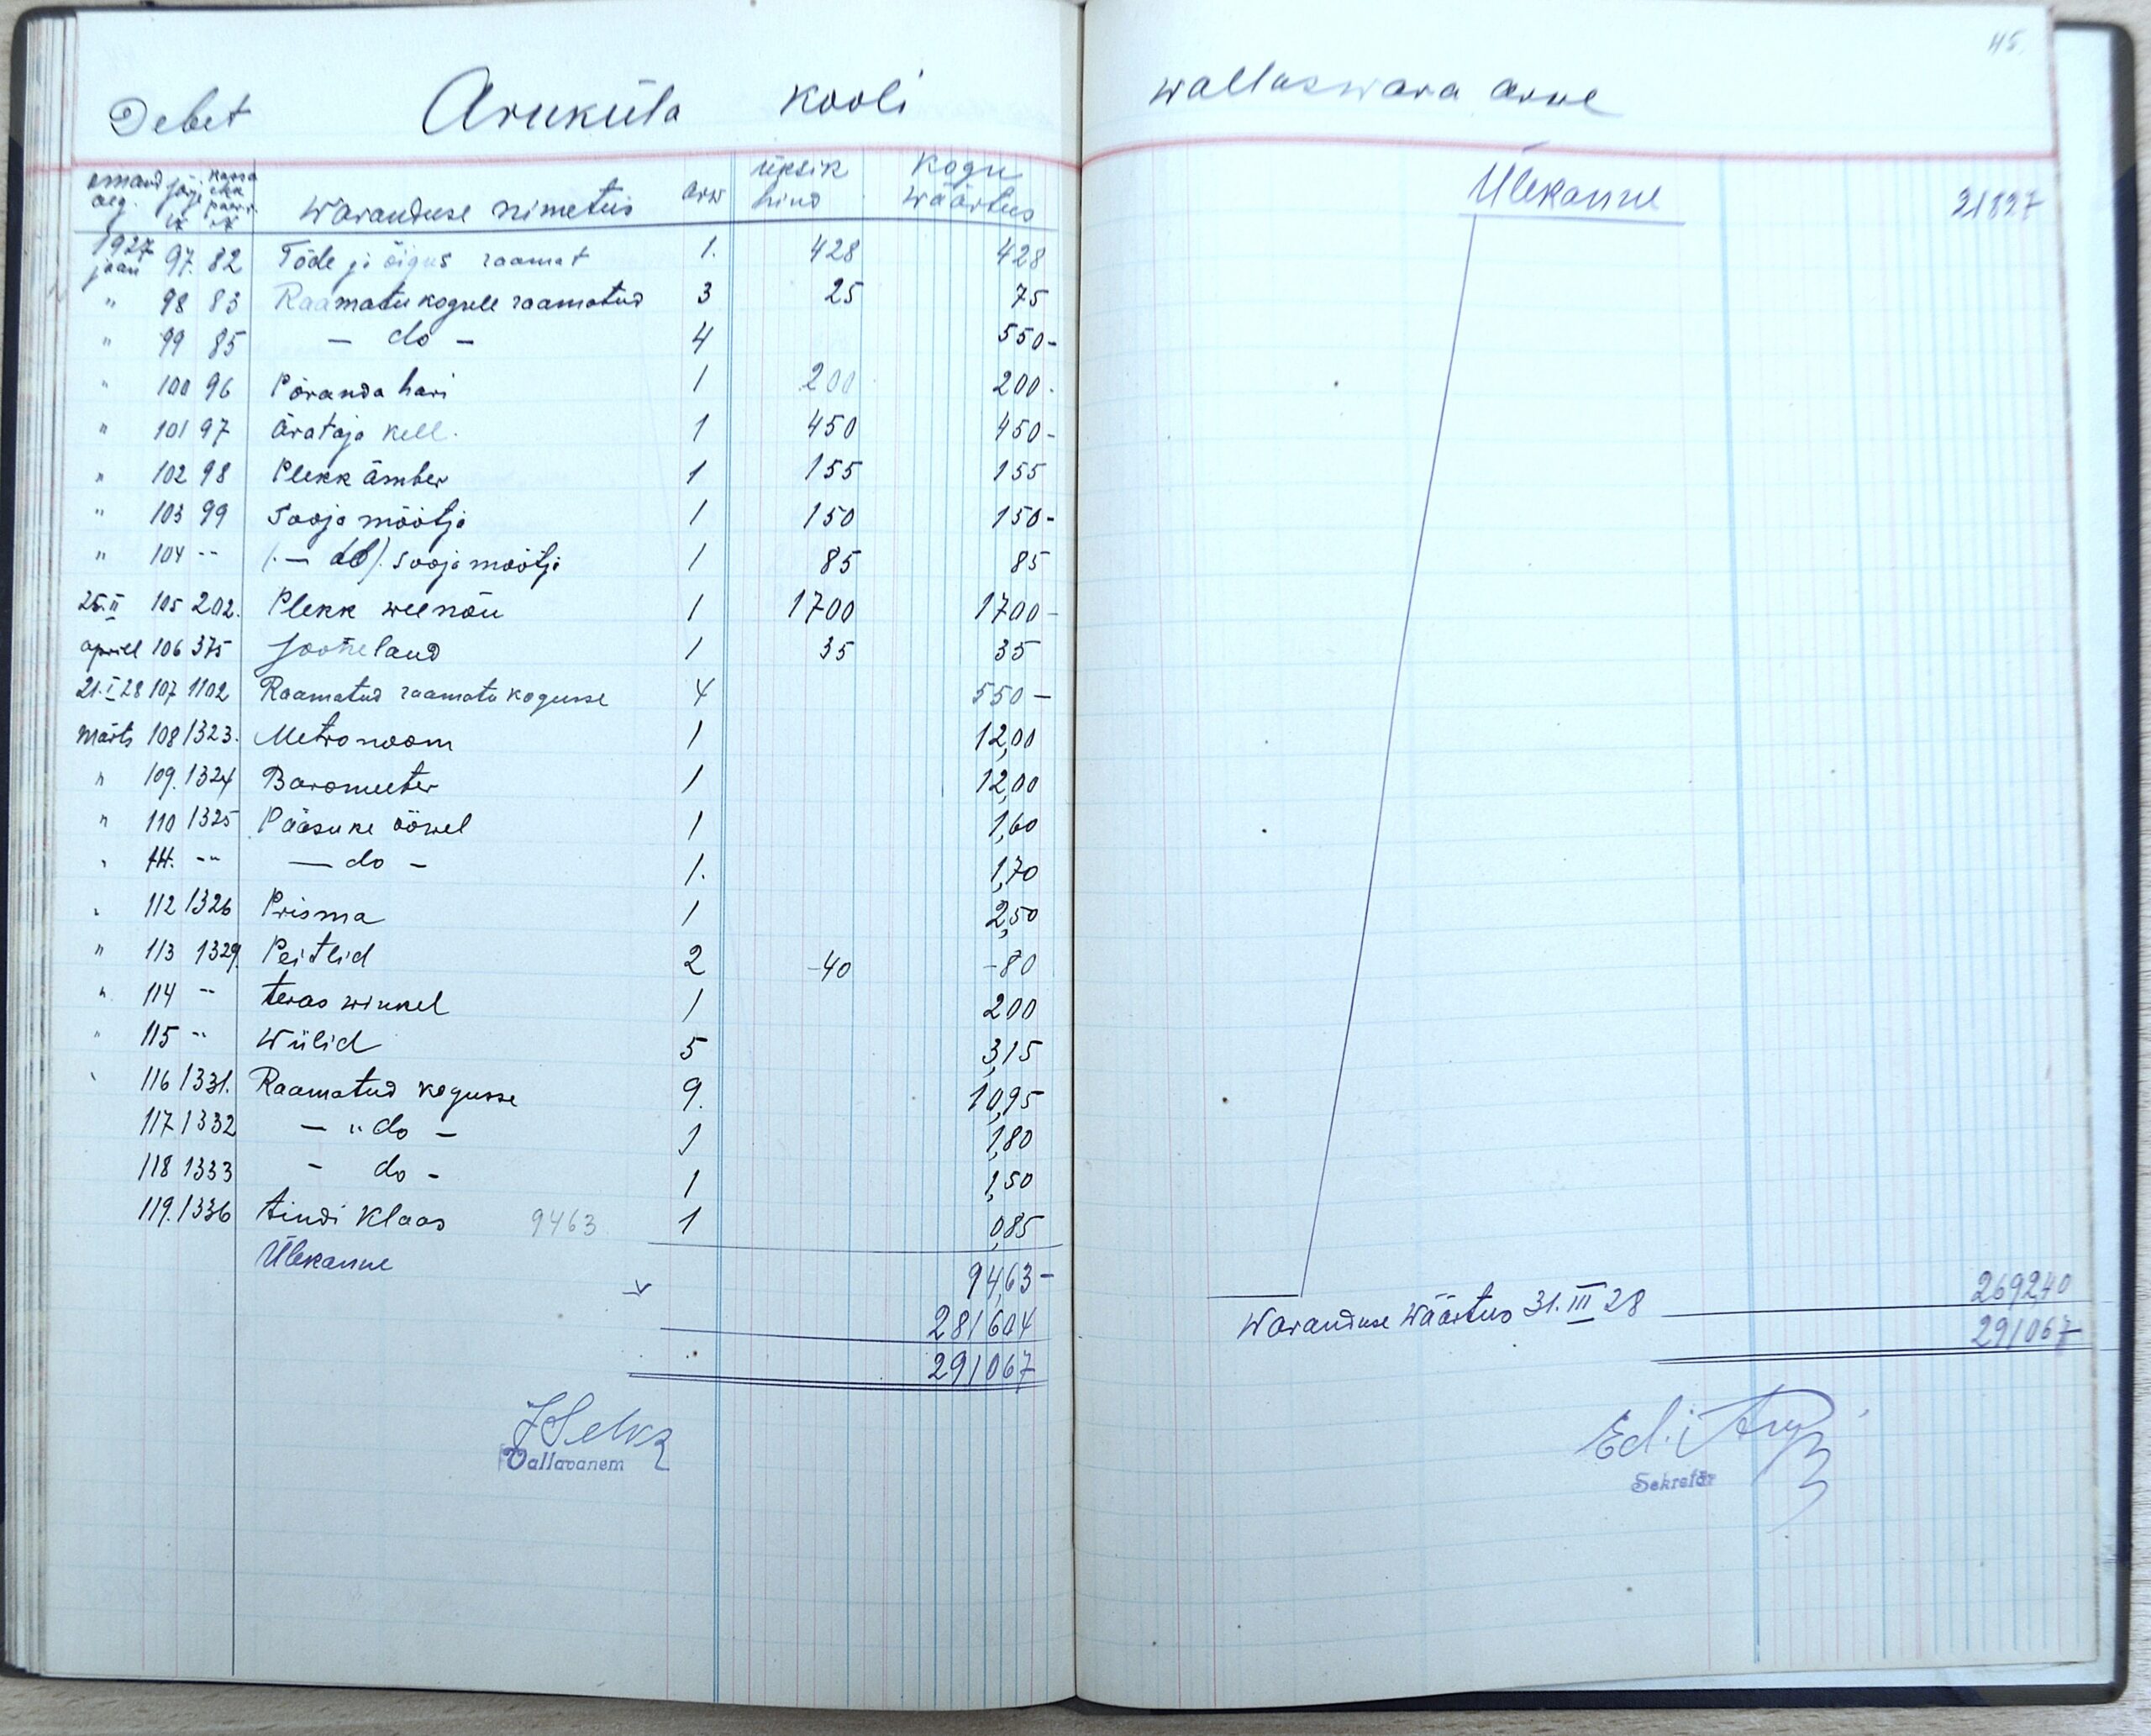 115.
Debet Aruküla kooli wallaswara arwe
omand. aeg. järje № kassa ehk paewr. № Waranduse nimetus arw üksik hind Kogu wäärtus
1927 jaan 97. 82 Tõde ja õigus raamat 1. 428 428
" 98 83 Raamatukogule raamatud 3 25 75
" 99 85 — do — 4 550-
" 100 96 Põranda hari 1 200 200.
" 101 97 Ärataja kell. 1 450 450-
" 102 98 Plekk ämber 1 155 155
" 103 99 Sooja mõõtja 1 150 150-
" 104 -"- (. — do). Sooja mõõtja 1 85 85
25.II 105 202. Plekk weenõu 1 1700 1700-
aprill 106 375 Jooneland 1 35 35
21.I 28 107 1102 Raamatud raamatukogusse 4 550 —
Märts 108 1323. Metronoom 1 12,00
" 109. 1324 Baromeeter 1 12,00
" 110 1325 Pääsukeööwel 1 1,60
" 111. -"- — do — 1. 1,70
" 112 1326 Prisma 1 2,50
" 113 1329. Peitlid 2 -40 -80
" 114 -"- teras winkel 1 200
" 115 -"- Wiilid 5 3,15
" 116 1331. Raamatud kogusse 9. 10,95
117. 1332 — " do — 1 1,80
118 1333 - do - 1 1,50
119. 1336 tindi klaas 9463 1 0,85
Ülekanne 94,63-
281604
291067
Vallavanem
Ülekanne 21827
Waranduse Wäärtus 31.III 28 269240
291067
Sekretär